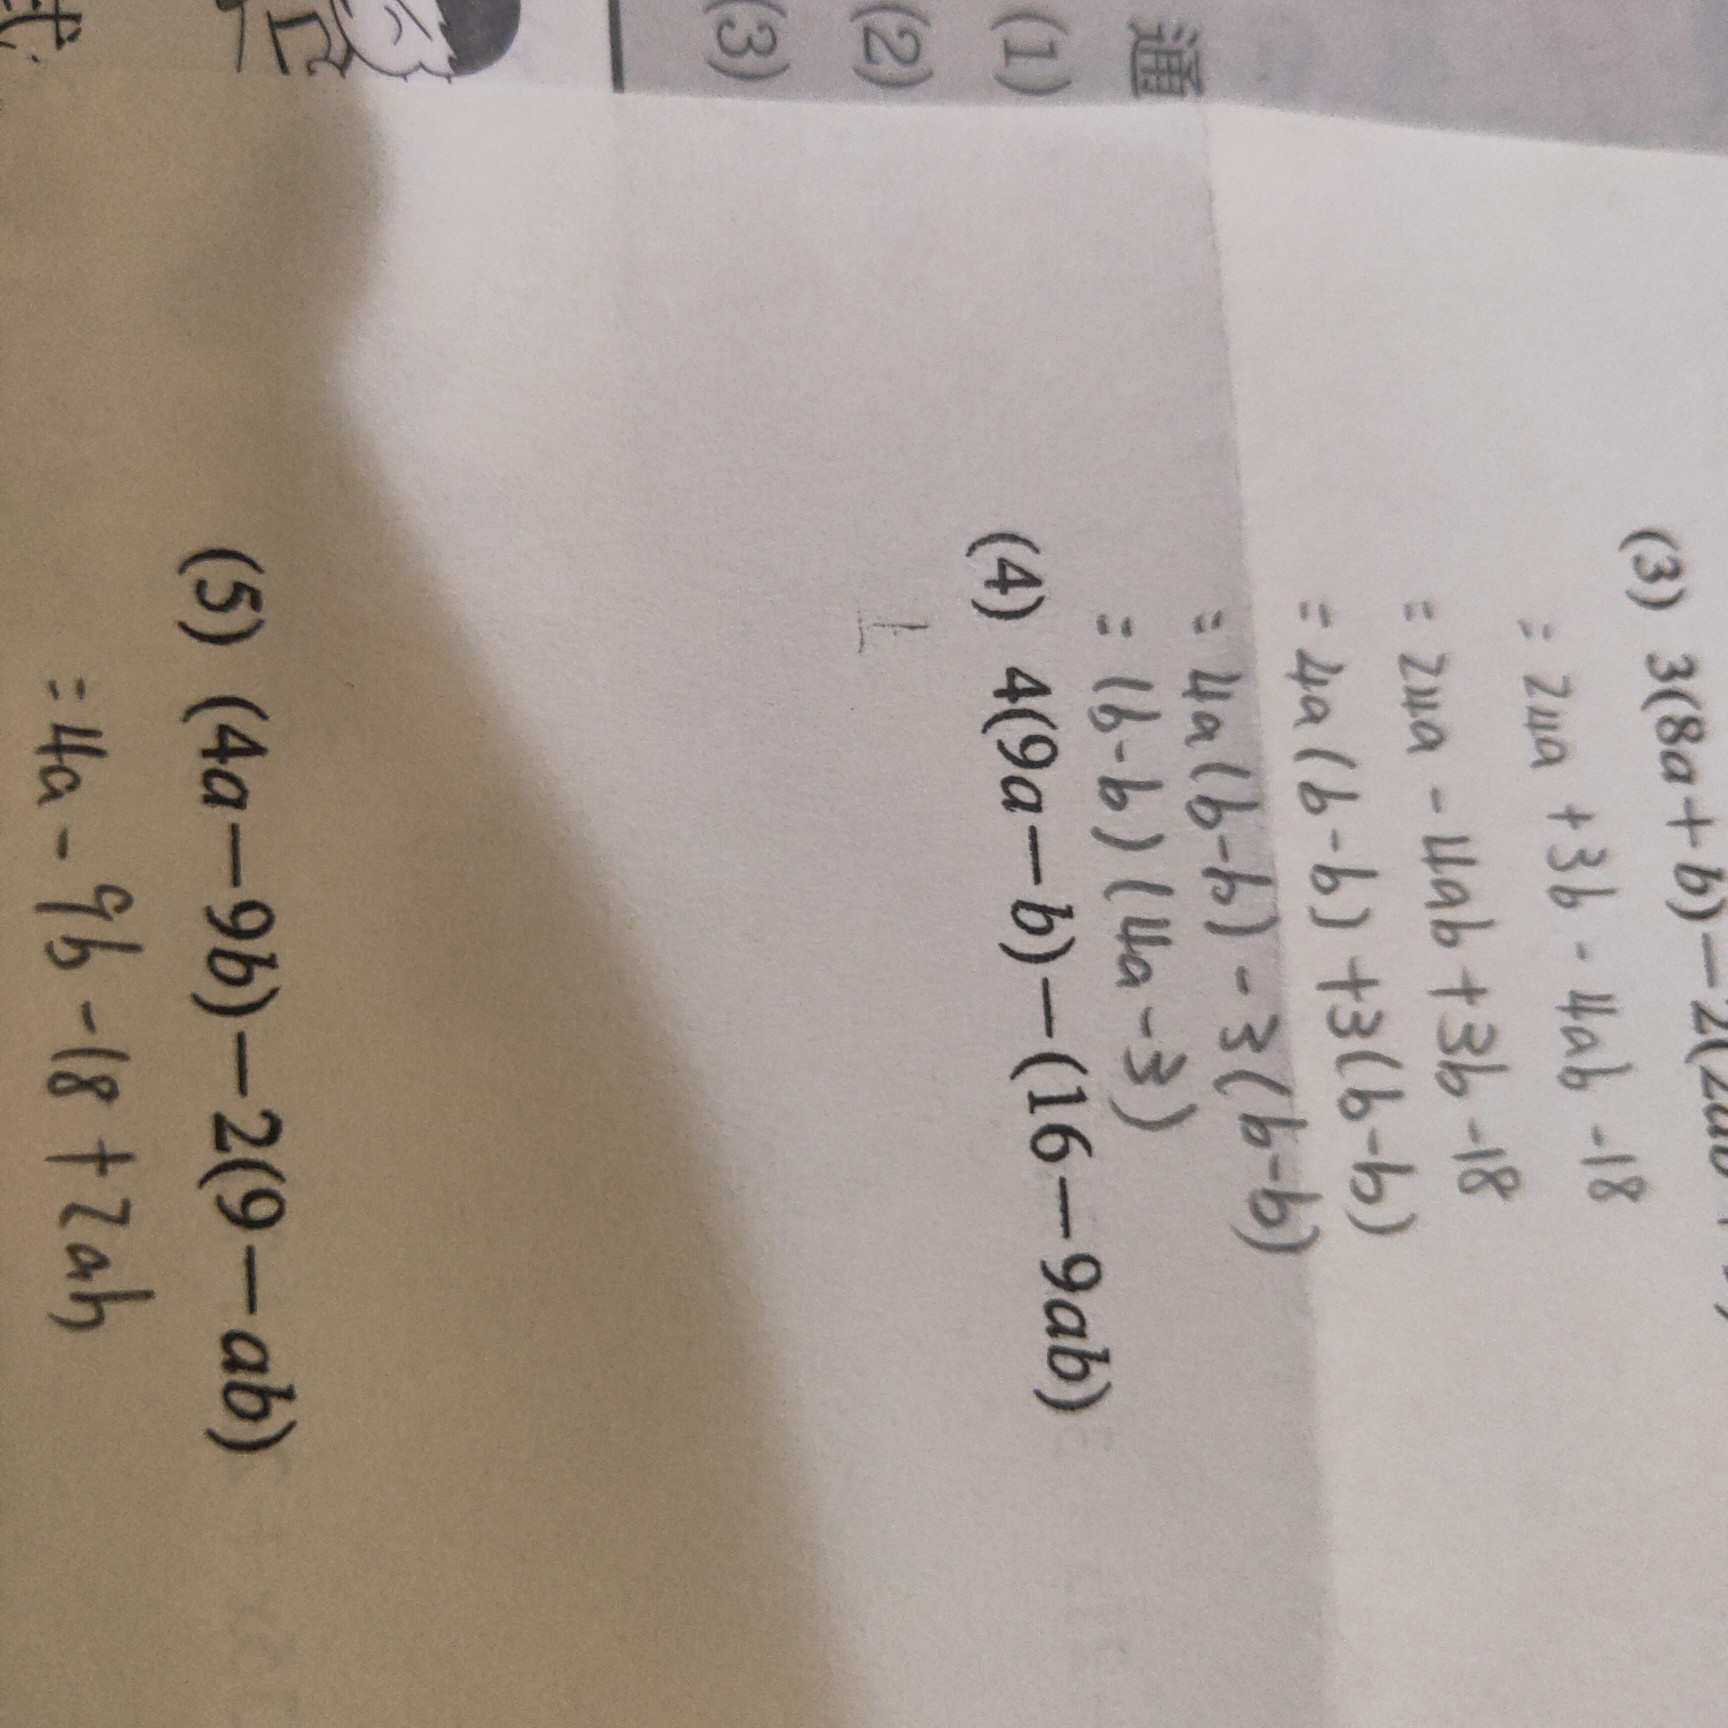 通
(1)
(2)
(3)
(3) 3(8a+b)−2(2ab
= 24a + 3b - 4ab - 18
= 24a - 4ab + 3b - 18
= 4a(6-b) + 3(b-6)
= 4a(6-b) - 3(6-b)
= (6-b)(4a-3)
(4) 4(9a−b)−(16−9ab)
(5) (4a−9b)−2(9−ab)
= 4a - 9b - 18 + 2ab
式